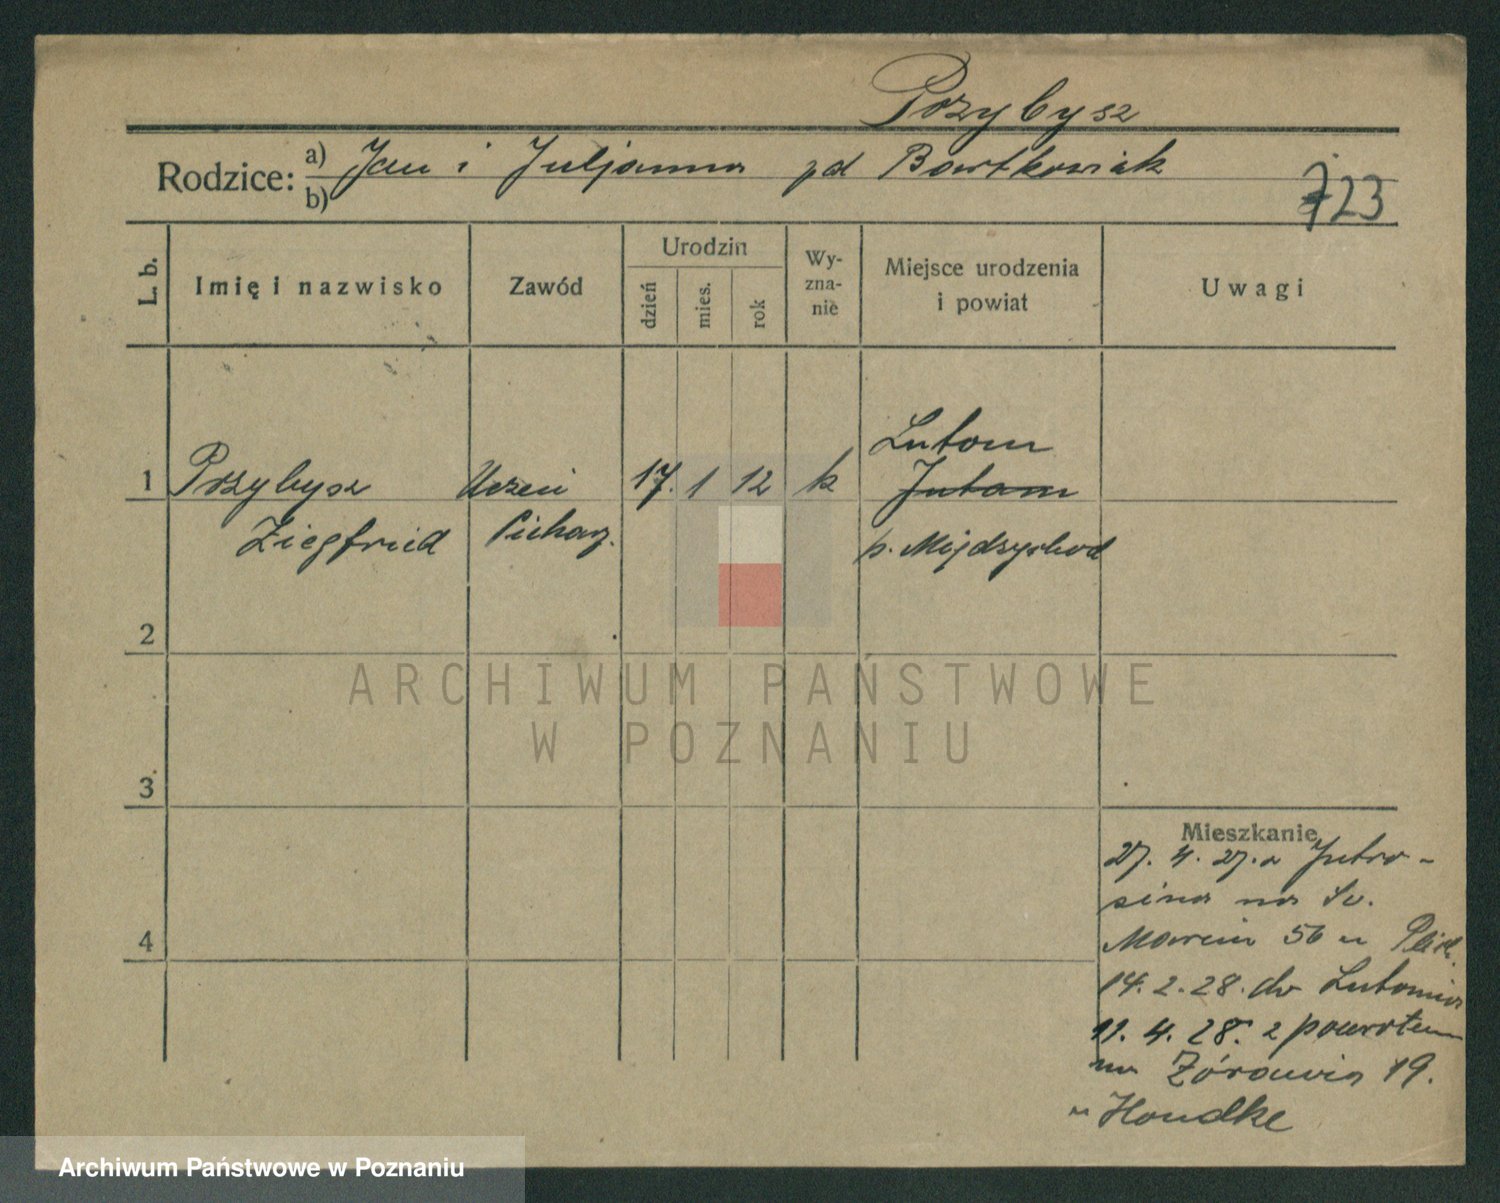 Przybysz
Rodzice: a) Jan i Juljanna zd Bartkowiak
b)
723
L. b.
Imię i nazwisko
Zawód
Urodzin
dzień
mies.
rok
Wy-
zna-
nie
Miejsce urodzenia
i powiat
Uwagi
Lutom
1 Przybysz Uczeń 17. 1 12 k Jutom
Ziegfried p. Międzychod
2
ARCHIWUM PAŃSTWOWE
W POZNANIU
3
Mieszkanie
27. 4. 27. z Jutro-
sina na Św.
4
Marcin 56 u
14. 2. 28. do Lutomia
11. 4. 28. z powrotem
na Żórawia 19.
u Handke
Archiwum Państwowe w Poznaniu